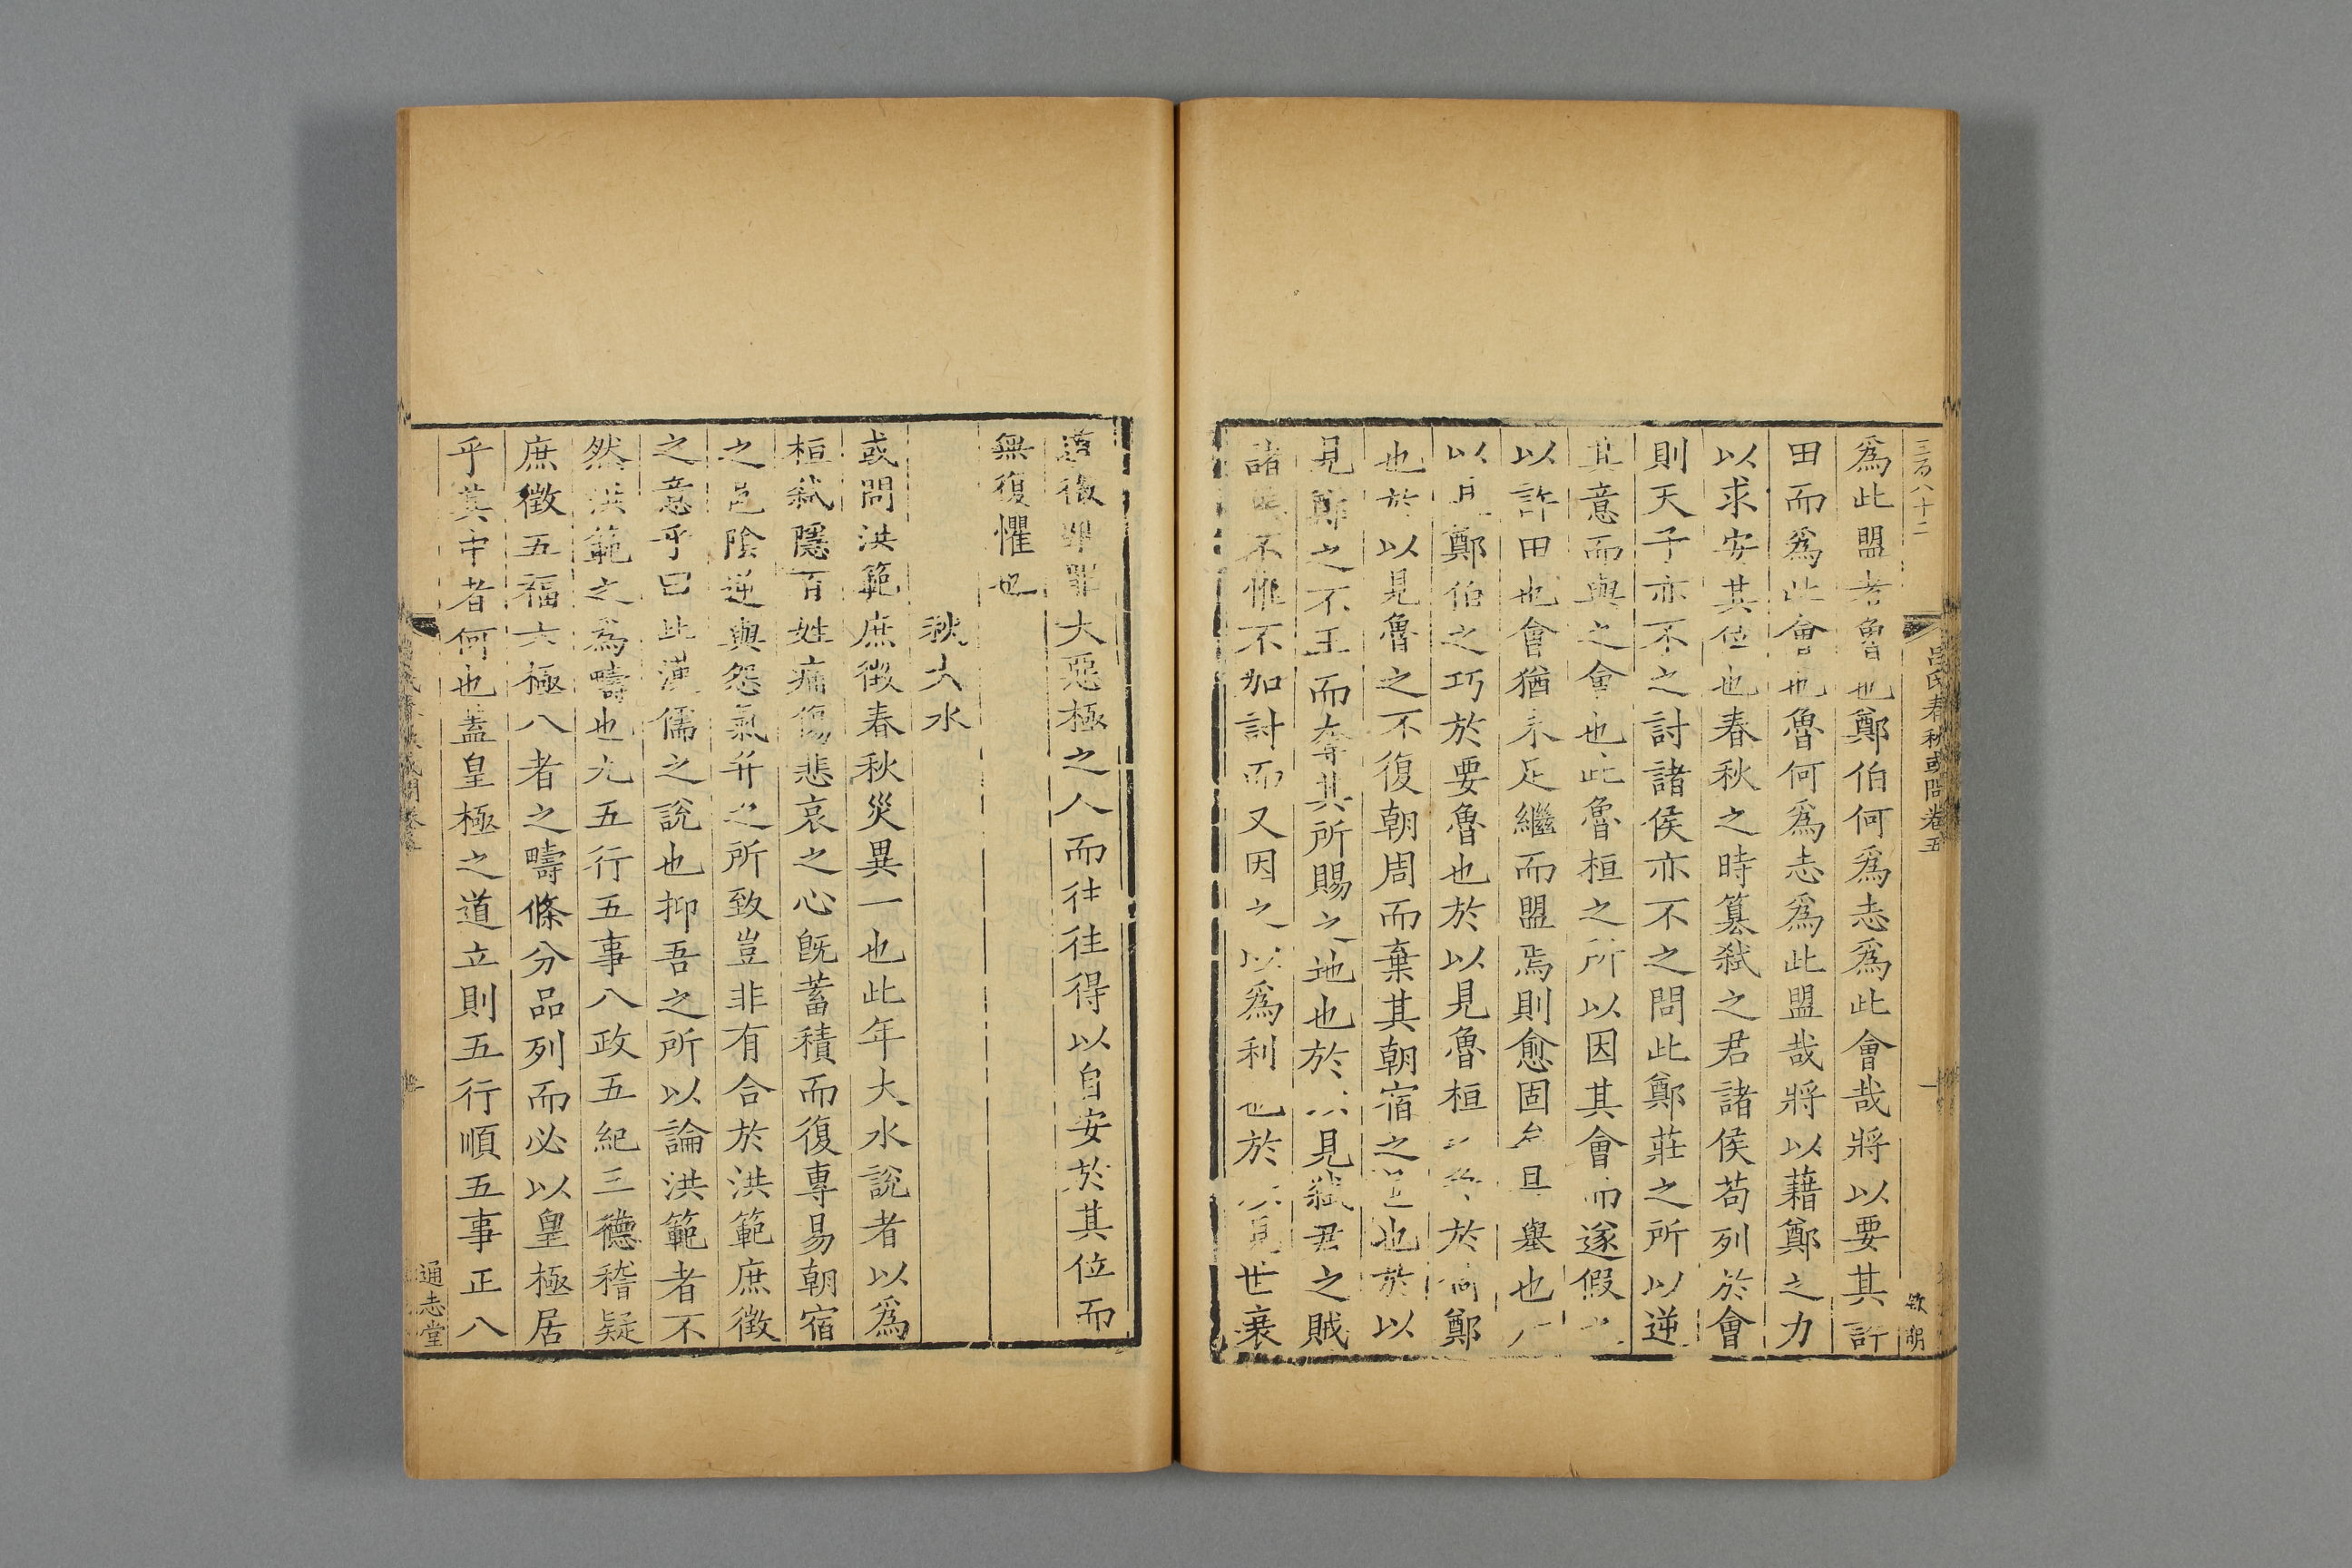 三百八十二
呂氏春秋或問卷五
一
欽明
爲此盟者魯也鄭伯何爲志爲此會哉將以要其許
田而爲此會也魯何爲志爲此盟哉將以藉鄭之力
以求安其位也春秋之時篡弒之君諸侯苟列於會
則天子亦不之討諸侯亦不之問此鄭莊之所以逆
其意而與之會也此魯桓之所以因其會而遂假之
以許田也會猶未足繼而盟焉則愈固矣且舉也
以見鄭伯之巧於要魯也於以見魯桓於鄭
也於以見魯之不復朝周而棄其朝宿之邑也於以
見鄭之不王而奪其所賜之地也於以見弒君之賊
諸侯不惟不加討而又因之以爲利也於以見世衰
道微罪大惡極之人而往往得以自安於其位而
無復懼也
秋大水
或問洪範庶徵春秋災異一也此年大水說者以爲
桓弒隱百姓痛傷悲哀之心旣蓄積而復專易朝宿
之邑陰逆與怨氣并之所致豈非有合於洪範庶徵
之意乎曰此漢儒之說也抑吾之所以論洪範者不
然洪範之爲疇也九五行五事八政五紀三德稽疑
庶徵五福六極八者之疇條分品列而必以皇極居
乎其中者何也蓋皇極之道立則五行順五事正八
通志堂